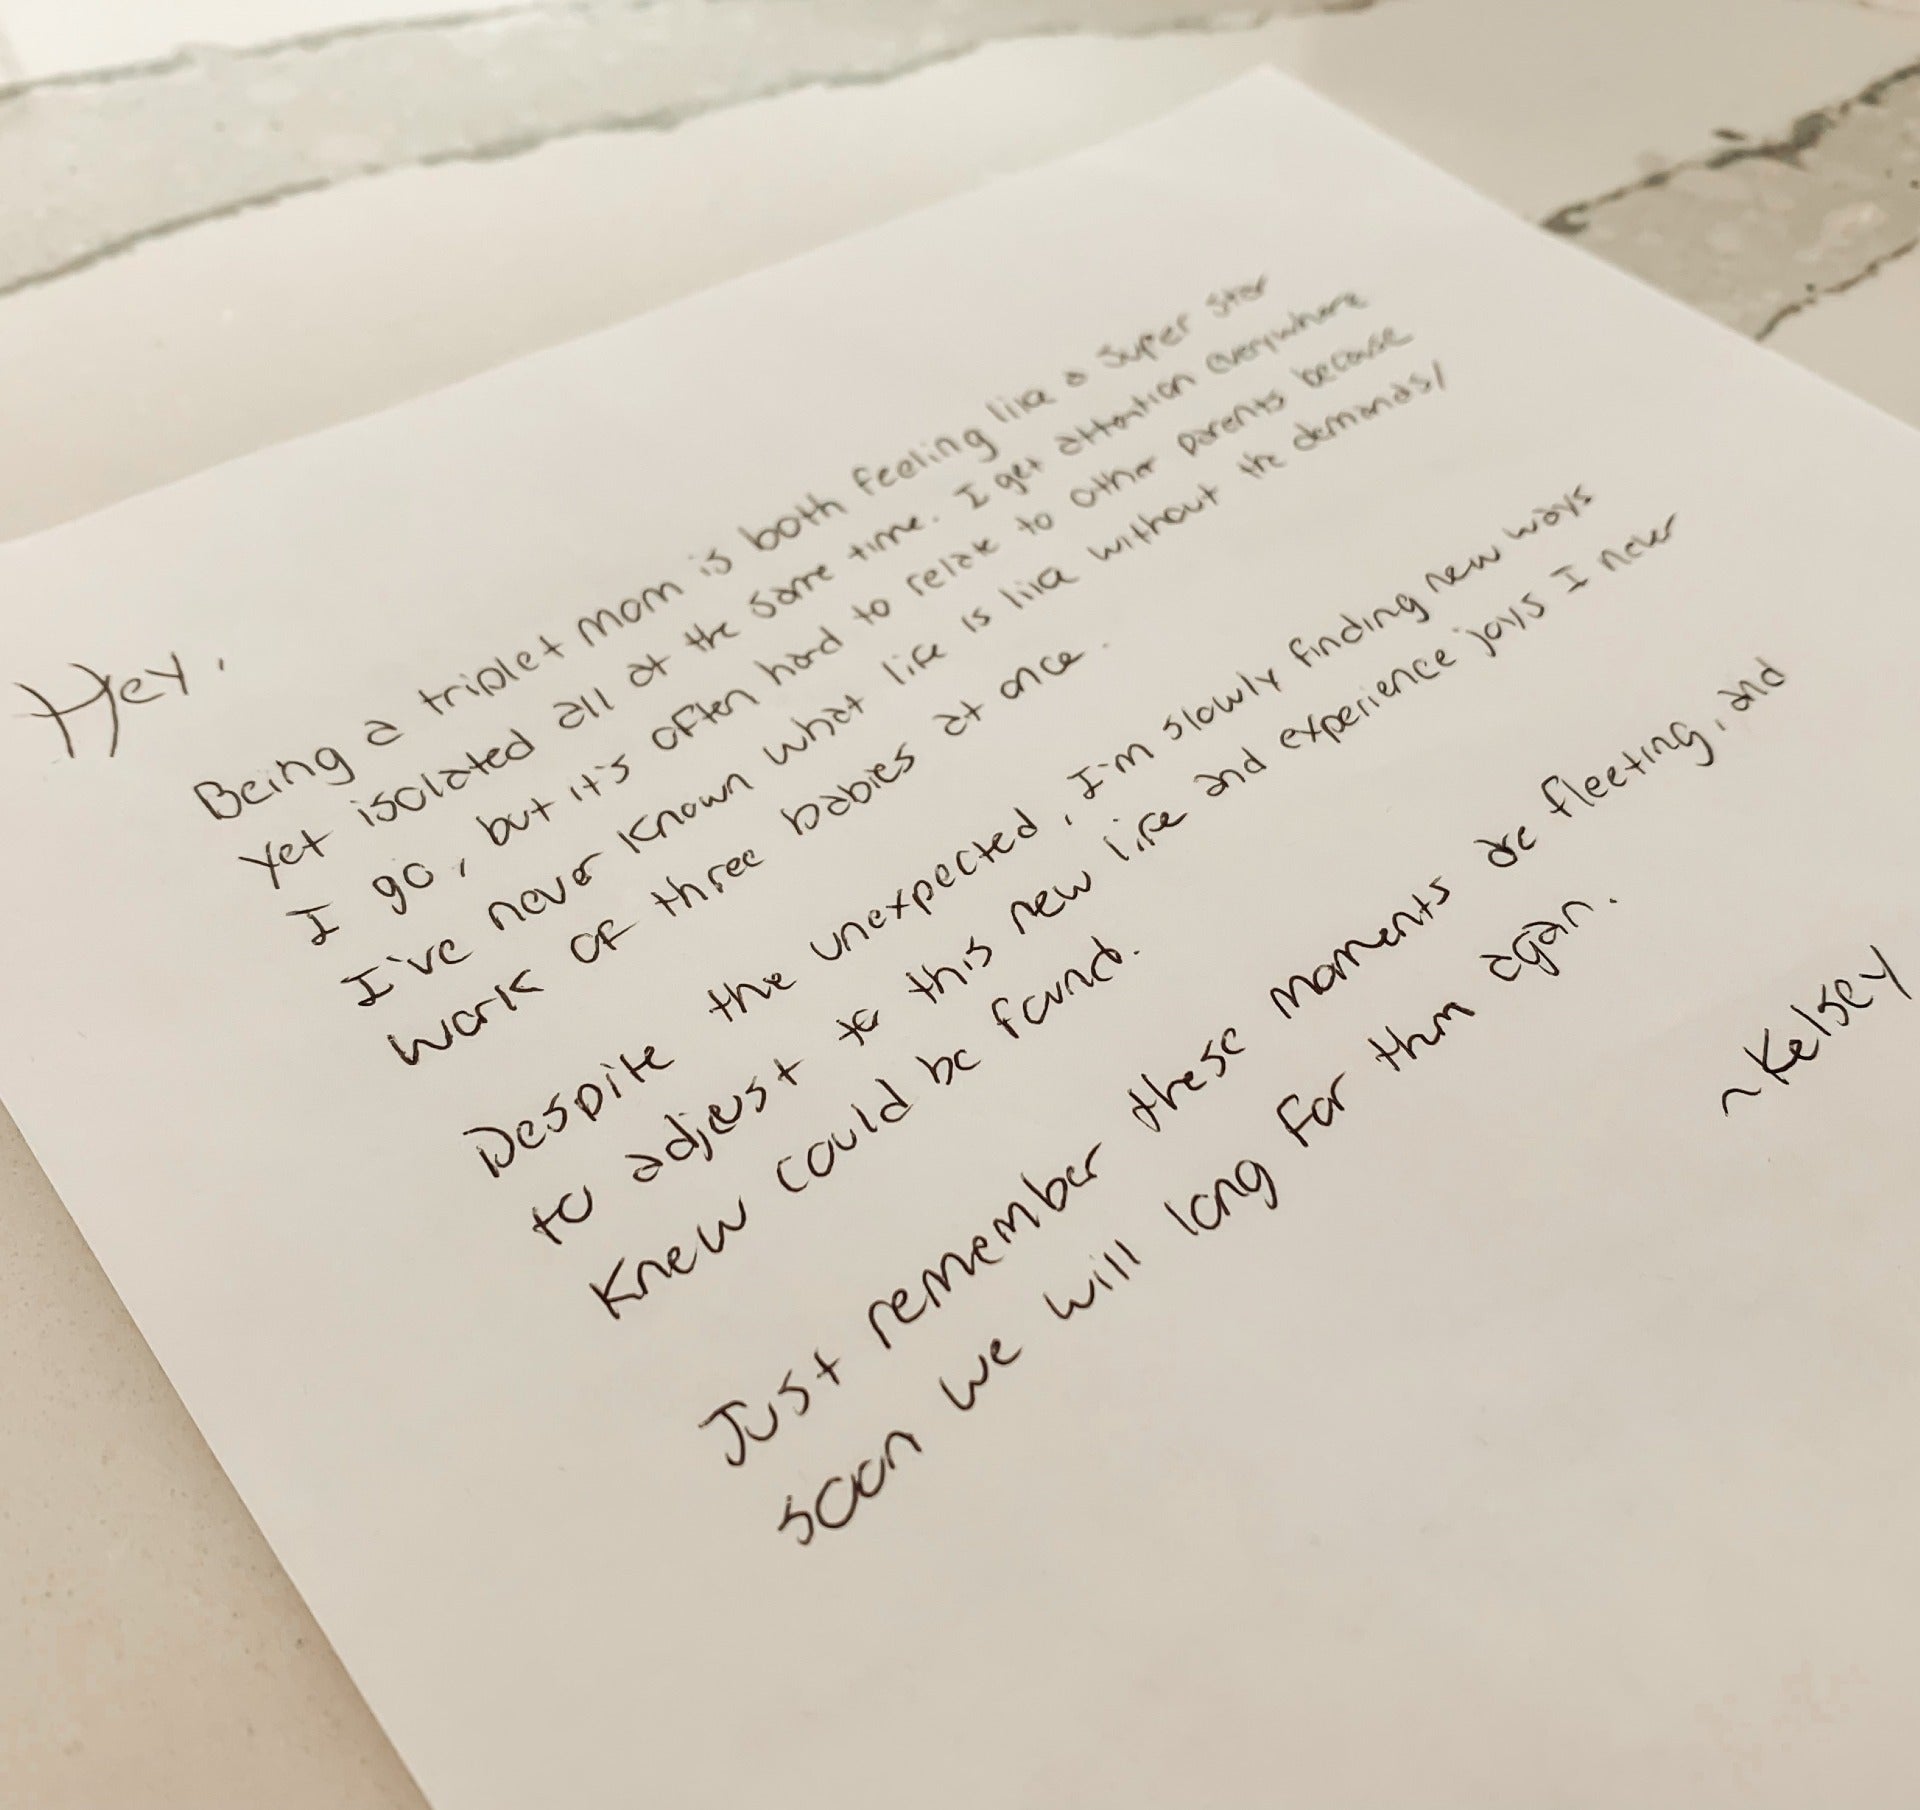 Hey,
Being a triplet mom is both feeling like a super star
yet isolated all at the same time. I get attention everywhere
I go, but it's often hard to relate to other parents because
I've never known what life is like without the demands/
work of three babies at once.
Despite the unexpected, I'm slowly finding new ways
to adjust to this new life and experience joys I never
knew could be found.
Just remember these moments are fleeting, and
soon we will long for them again.
~Kelsey